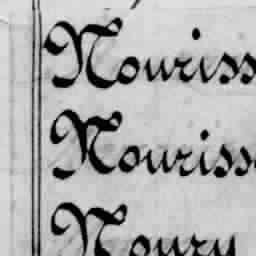 Nouriss
Nouriss
Noury